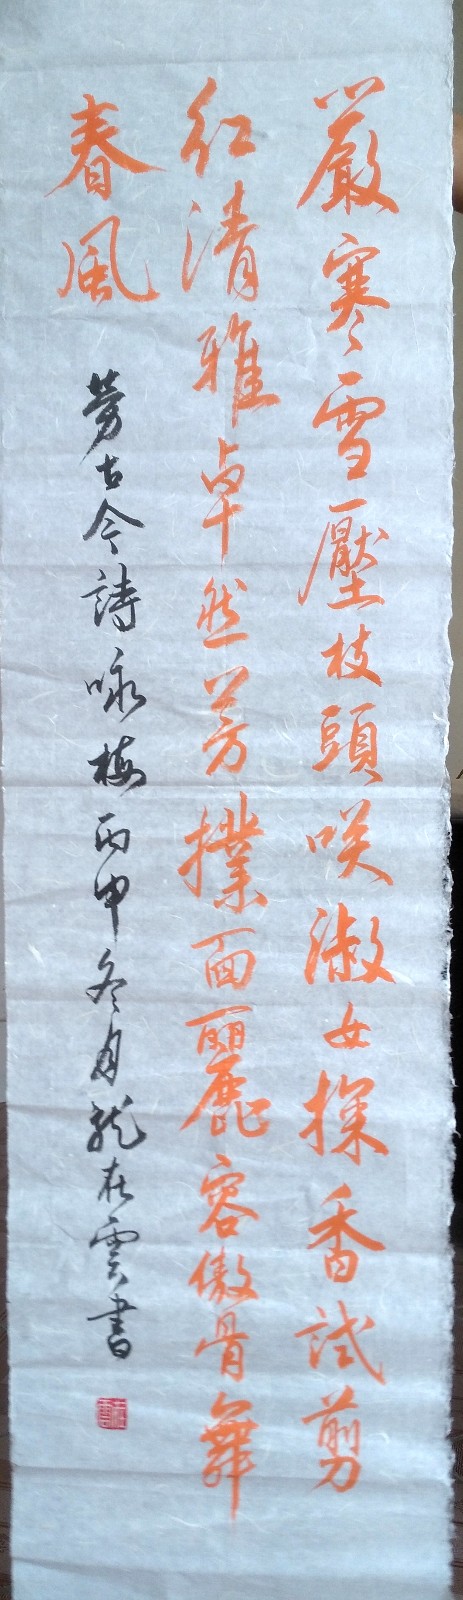 嚴寒雪壓枝頭咲淑女探香試剪
紅清雅卓然芳撲面麗容傲骨舞
春風
劳古今詩咏梅丙申冬月龍在雲書